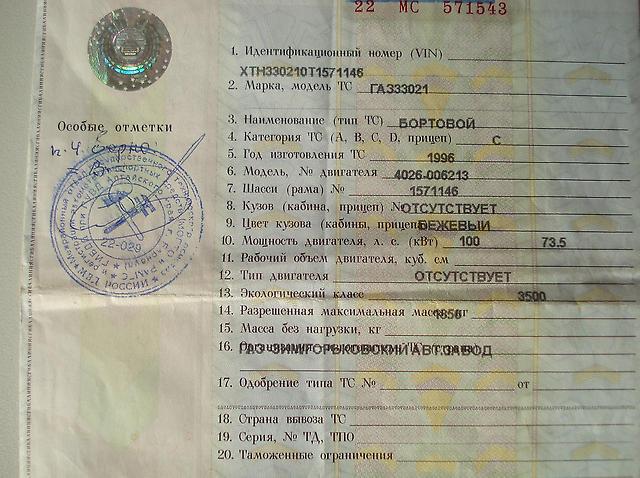 22 МС 571543
1. Идентификационный номер (VIN)
XTH330210T1571146
2. Марка, модель ТС ГАЗ33021
3. Наименование (тип ТС) БОРТОВОЙ
Особые отметки
4. Категория ТС (А, В, С, D, прицеп) С
5. Год изготовления ТС 1996
6. Модель, № двигателя 4026-006213
7. Шасси (рама) № 1571146
8. Кузов (кабина, прицеп) № ОТСУТСТВУЕТ
9. Цвет кузова (кабины, прицепа) БЕЖЕВЫЙ
10. Мощность двигателя, л. с. (кВт) 100 73.5
11. Рабочий объем двигателя, куб. см
12. Тип двигателя ОТСУТСТВУЕТ
13. Экологический класс 3500
14. Разрешенная максимальная масса, кг 1850
15. Масса без нагрузки, кг
16. ГОРЬКОВСКИЙ АВТОЗАВОД
17. Одобрение типа ТС № от
18. Страна вывоза ТС
19. Серия, № ТД, ТПО
20. Таможенные ограничения
22-029
РОССИИ